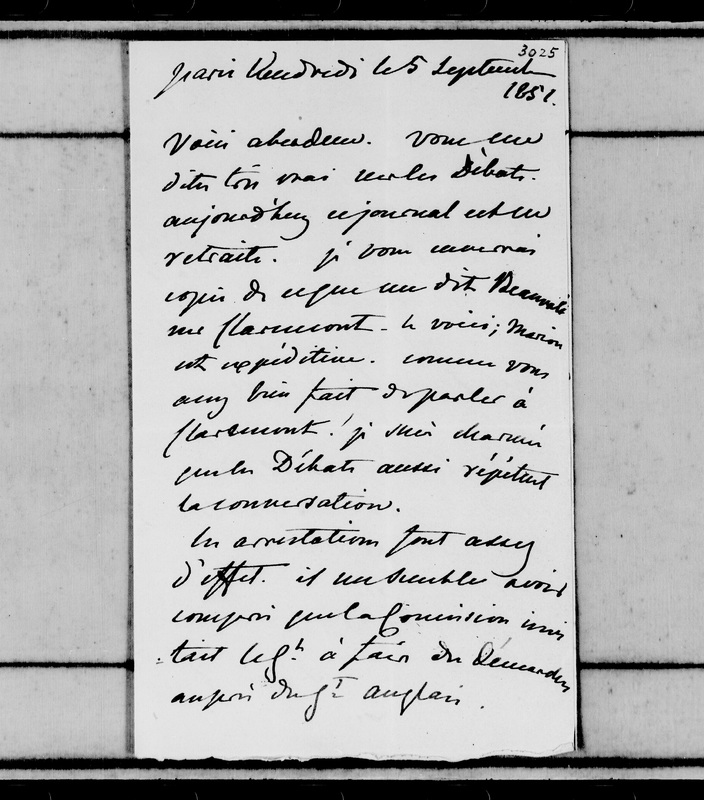 3025
paris Vendredi le 5 Septembre
1851.
Voici aberdeen. vous me
dites très vrai sur les Débats.
aujourd'huy ce journal est en
retraite. je vous enverrai
copie de ce que me dit Beauvale
sur Claremont. le voici; Marion
est expéditive. comme vous
avez bien fait de parler à
Claremont! je suis charmée
que les Débats aussi répètent
la conversation.
les arrestations font assez
d'effet. il me semble avoir
compris que la Comission invi
tait le gt à faire des démarches
auprès du gt anglais.